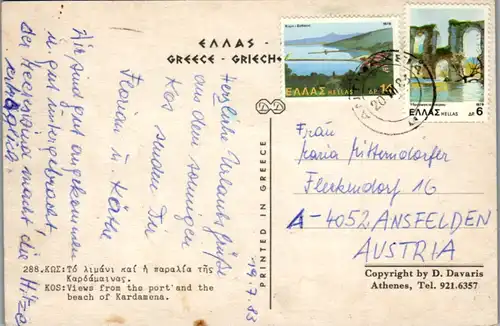 ΕΛΛΑΣ -
GREECE - GRIECH
Herzliche Urlaubsgrüße
aus dem sonnigen
Kos senden Dir
Florian u. Käthe
Wir sind gut angekommen
u. gut untergebracht,
der Meeresluft macht die Hitze
erträglich.
19.7.83
288. ΚΩΣ: Τό λιμάνι καί ἡ παραλία τῆς
Καρδάμαινας.
KOS: Views from the port and the
beach of Kardamena.
PRINTED IN GREECE
1979
ΕΛΛΑΣ HELLAS ΔΡ
ΕΛΛΑΣ HELLAS ΔΡ 6
Frau
Maria Mitterndorfer
Fleckendorf 16
A-4052 ANSFELDEN
AUSTRIA
Copyright by D. Davaris
Athenes, Tel. 921.6357